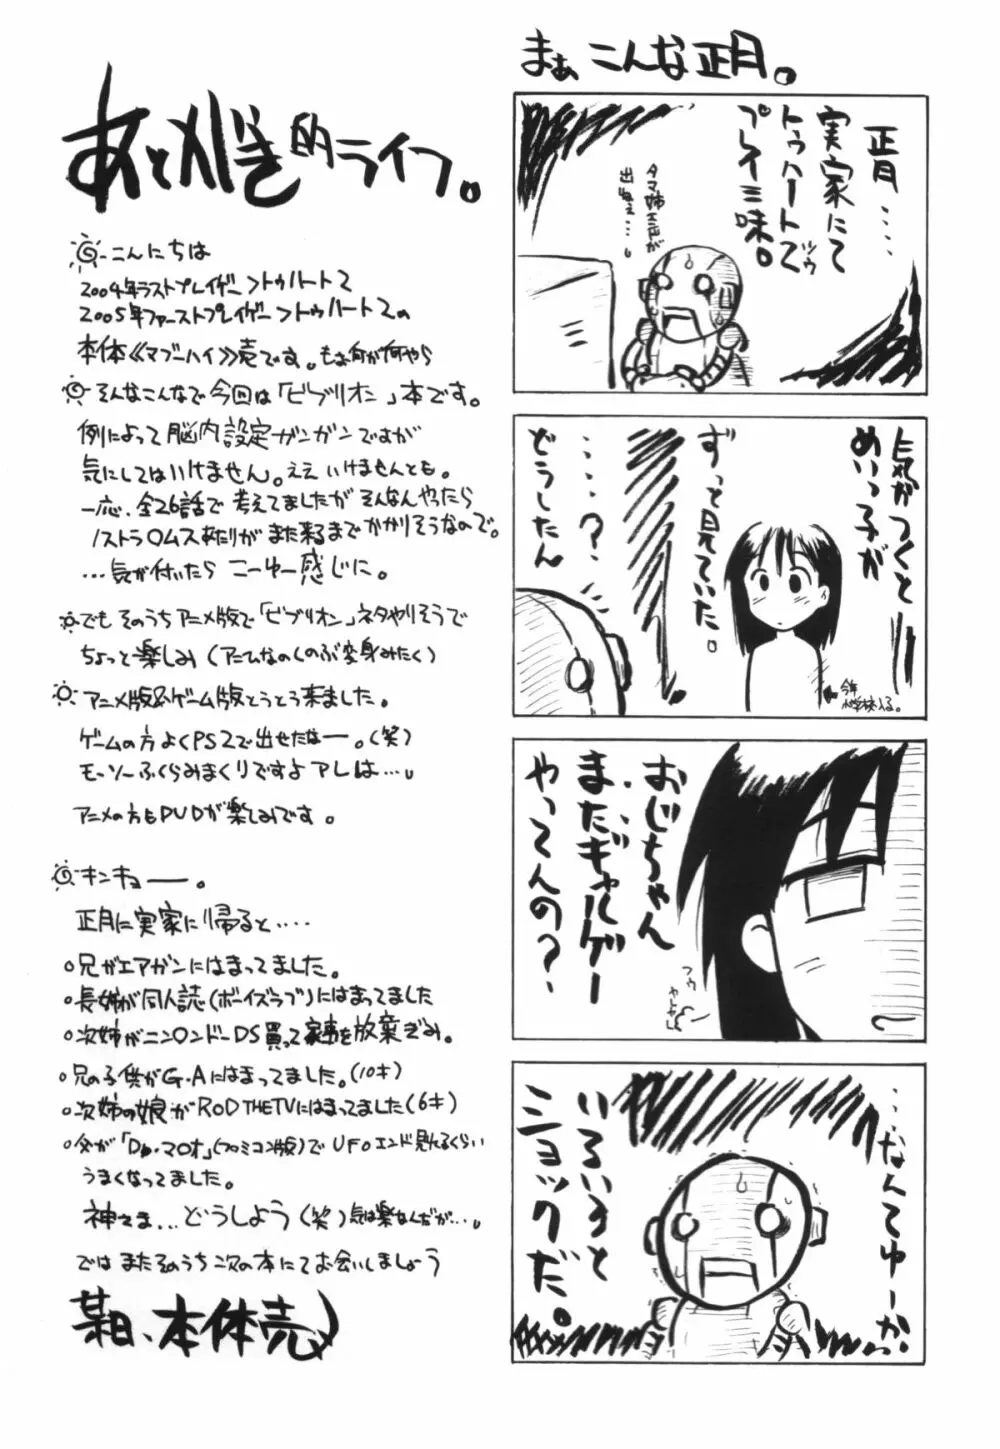 まぁ こんな正月。
正月....
実家にて
トゥハート2ツゥ
プレイ三味。
タマ姉エロが
出ねぇ...。
気がつくと
めいっ子が
ずっと見ていた。
今年
小学校入る。
.....?
どうしたん
おじちゃん
まだギャルゲー
やってんの?
フゥ
...なんてゆーか、
いろいろと
ショックだ。
あとがき的ライフ。
こんにちは
2004年ラストプレイゲー>トゥハート2
2005年ファーストプレイゲー>トゥハート2の
本体《マブーハイ》売です。もぉ何が何やら
そんなこんなで今回は「ビブリオン」本です。
例によって脳内設定ガンガンですが
気にしてはいけません」。ええ いけませんとも。
一応、全26話で 考えてましたが そんなんやったら
ノストラ〇ムスあたりがまた来るまでかかりそうなので。
...気が付いたら こーゆー感じに。
でも そのうちアニメ版で「ビブリオン」ネタやりそうで
ちょっと楽しみ(アニひなのしのぶ変身みたく)
アニメ版&ゲーム版とうとう来ました。
ゲームの方よくPS2で出せたなー。(笑)
モーソーふくらみまくりですよアレは...。
アニメの方もDVDが楽しみです。
キンキョー。
正月に実家に帰ると....
○兄がエアガンにはまってました。
○長姉が同人誌(ボーイズラブ)にはまってました
○次姉がニン〇ンドーDS買って家事を放棄ぎみ。
○兄の子供がG・Aにはまってました。(10才)
○次姉の娘がROD THE TVにはまってました(6才)
○父が「Dr.マ〇オ」(ファミコン版)でUFOエンド見れるくらい
うまくなってました。
神さま...どうしよう(笑)気は楽なんだが...。
では またそのうち次の本にてお会いしましょう
某日、本体売